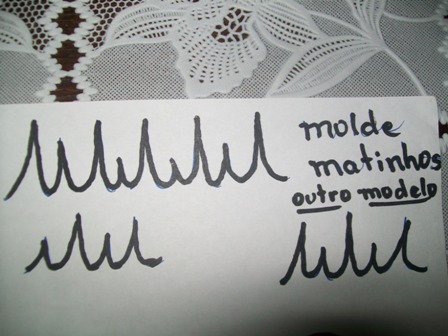 molde
matinhos
outro modelo